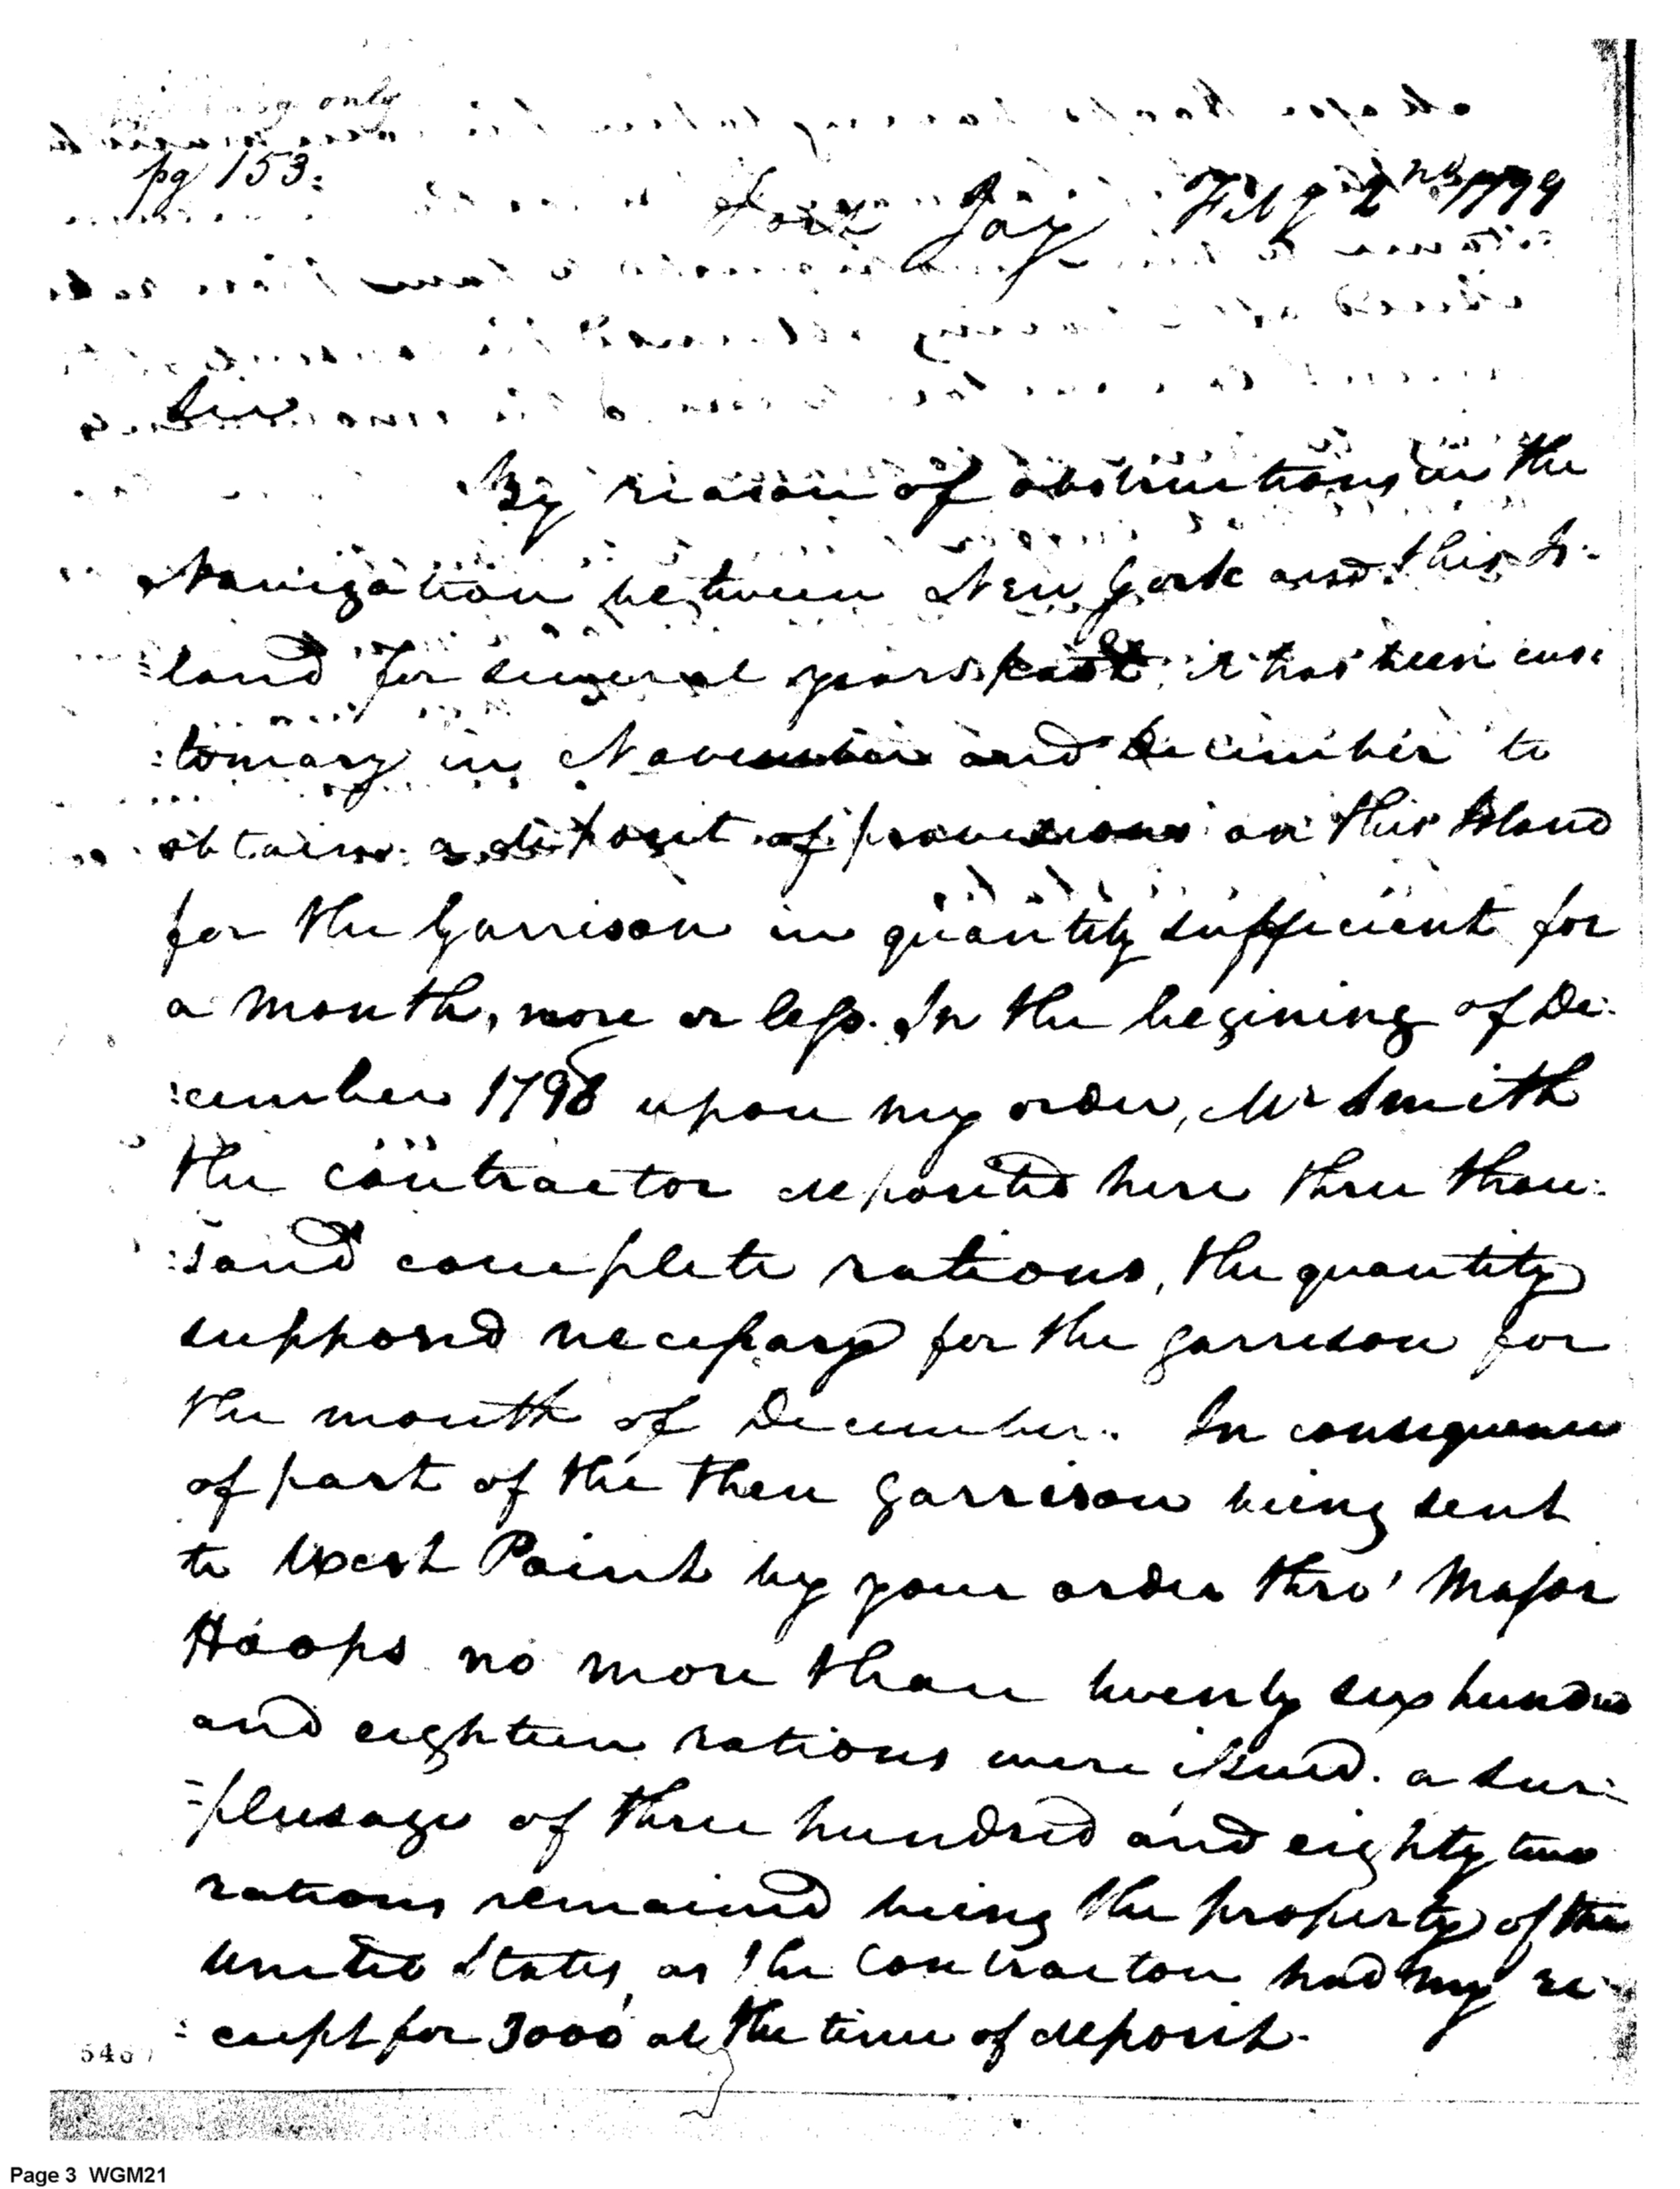 only
pg 153.
Fort Jay Feby 2nd 1799
Sir
By reason of obstructions in the
Navigation between New York and this Is-
:land for several years past, it has been cus:
:tomary in November and December to
obtain a deposit of provisions on this Island
for the Garrison in quantity sufficient for
a month, more or less. In the begining of De:
:cember 1798 upon my order, Mr Smith
the contractor deposited here three thou:
:sand complete rations, the quantity
supposed necessary for the garrison for
the month of December. In consequence
of part of the then garrison being sent
to West Point by your order thro' Major
Hoops no more than twenty six hundred
and eighteen rations were issued. a sur:
=plusage of three hundred and eighty two
rations remained being the property of the
United States, as the Contractor had my re-
:ceipt for 3000 at the time of deposit.
546
Page 3 WGM21